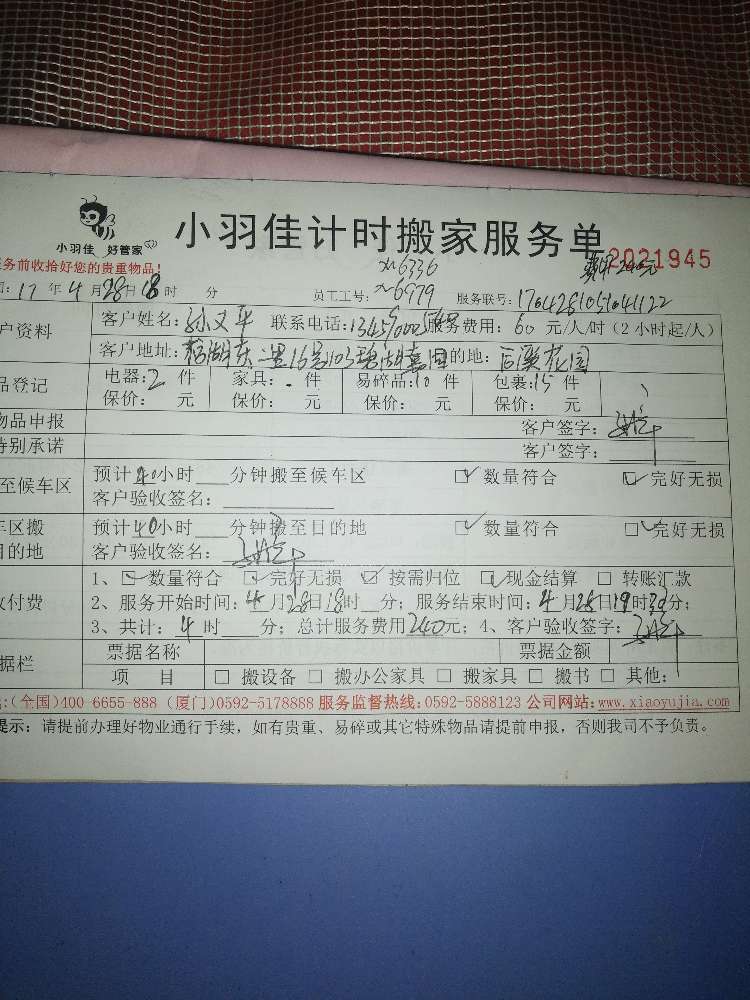 小羽佳 好管家
小羽佳计时搬家服务单
2021945
务前收拾好您的贵重物品!
6336
费用 240元
17 年 4 月 28 日 18 时 分 员工工号: 6979 服务联号: 1704281051041122
户资料 客户姓名: 联系电话: 服务费用: 60 元/人/时 (2小时起/人)
客户地址: 目的地: 后溪花园
品登记 电器: 2 件 家具: - 件 易碎品: 10 件 包裹: 15 件
保价: 元 保价: 元 保价: 元 保价: 元
物品申报 客户签字:
特别承诺 客户签字:
至候车区 预计 40 小时 分钟搬至候车区 ☑ 数量符合 ☑ 完好无损
客户验收签名:
车区搬 预计 40 小时 分钟搬至目的地 ☑ 数量符合 ☑ 完好无损
目的地 客户验收签名:
1、☑ 数量符合 ☑ 完好无损 ☑ 按需归位 ☑ 现金结算 □ 转账汇款
收付费 2、服务开始时间: 4 月 28 日 18 时 分; 服务结束时间: 4 月 日 19 时 分;
3、共计: 4 时 分; 总计服务费用 240 元; 4、客户验收签字:
票据名称 票据金额
据栏 项 目 □ 搬设备 □ 搬办公家具 □ 搬家具 □ 搬书 □ 其他:
:(全国)400-6655-888 (厦门)0592-5178888 服务监督热线: 0592-5888123 公司网站: www.xiaoyujia.com
提示: 请提前办理好物业通行手续, 如有贵重、易碎或其它特殊物品请提前申报, 否则我司不予负责。